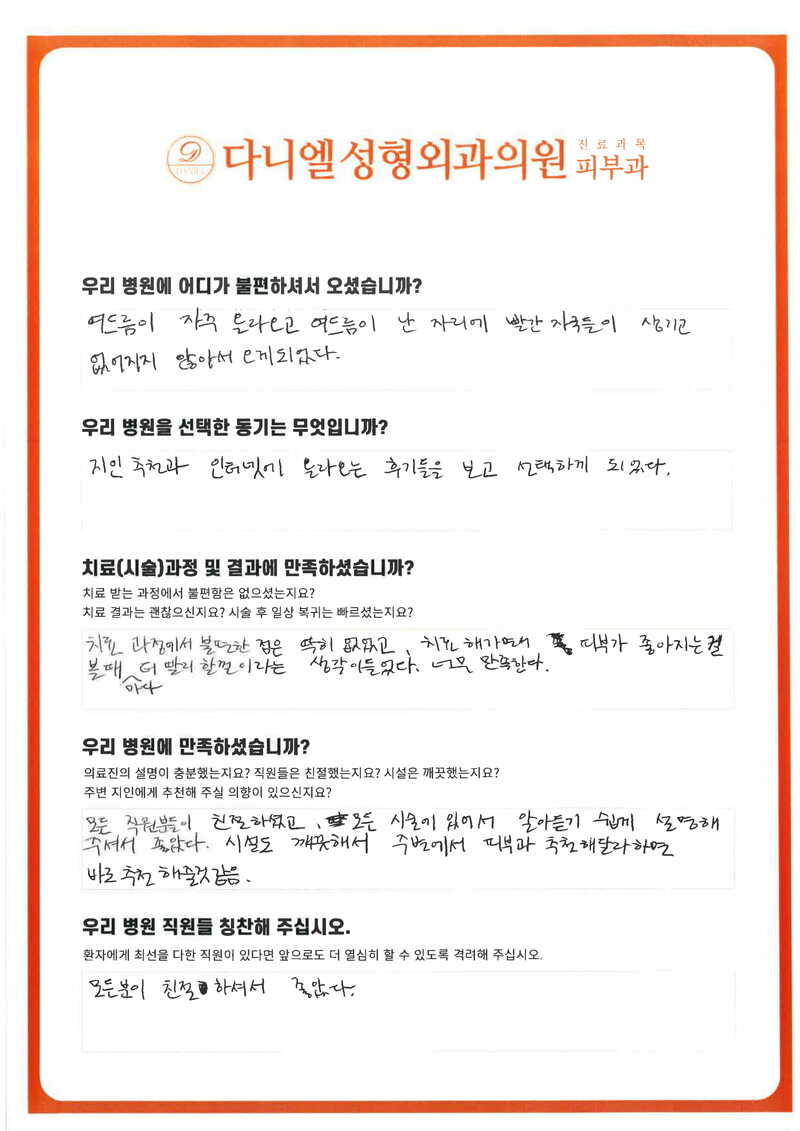 다니엘성형외과의원 진료과목 피부과
우리 병원에 어디가 불편하셔서 오셨습니까?
여드름이 자주 올라오고 여드름이 난 자리에 빨간 자국들이 생기고
없어지지 않아서 오게되었다.
우리 병원을 선택한 동기는 무엇입니까?
지인 추천과 인터넷에 올라오는 후기들을 보고 선택하게 되었다.
치료(시술)과정 및 결과에 만족하셨습니까?
치료 받는 과정에서 불편함은 없으셨는지요?
치료 결과는 괜찮으신지요? 시술 후 일상 복귀는 빠르셨는지요?
치료 과정에서 불편한 점은 딱히 없었고, 치료 해가면서 피부가 좋아지는걸
볼때 마다 더 빨리 할껄이라는 생각이들었다. 너무 만족한다.
우리 병원에 만족하셨습니까?
의료진의 설명이 충분했는지요? 직원들은 친절했는지요? 시설은 깨끗했는지요?
주변 지인에게 추천해 주실 의향이 있으신지요?
모든 직원분들이 친절하였고, 모든 시술에 있어서 알아듣기 쉽게 설명해
주셔서 좋았다. 시설도 깨끗해서 주변에서 피부과 추천해달라하면
바로 추천 해줄것같음.
우리 병원 직원들 칭찬해 주십시오.
환자에게 최선을 다한 직원이 있다면 앞으로도 더 열심히 할 수 있도록 격려해 주십시오.
모든분이 친절하셔서 좋았다.